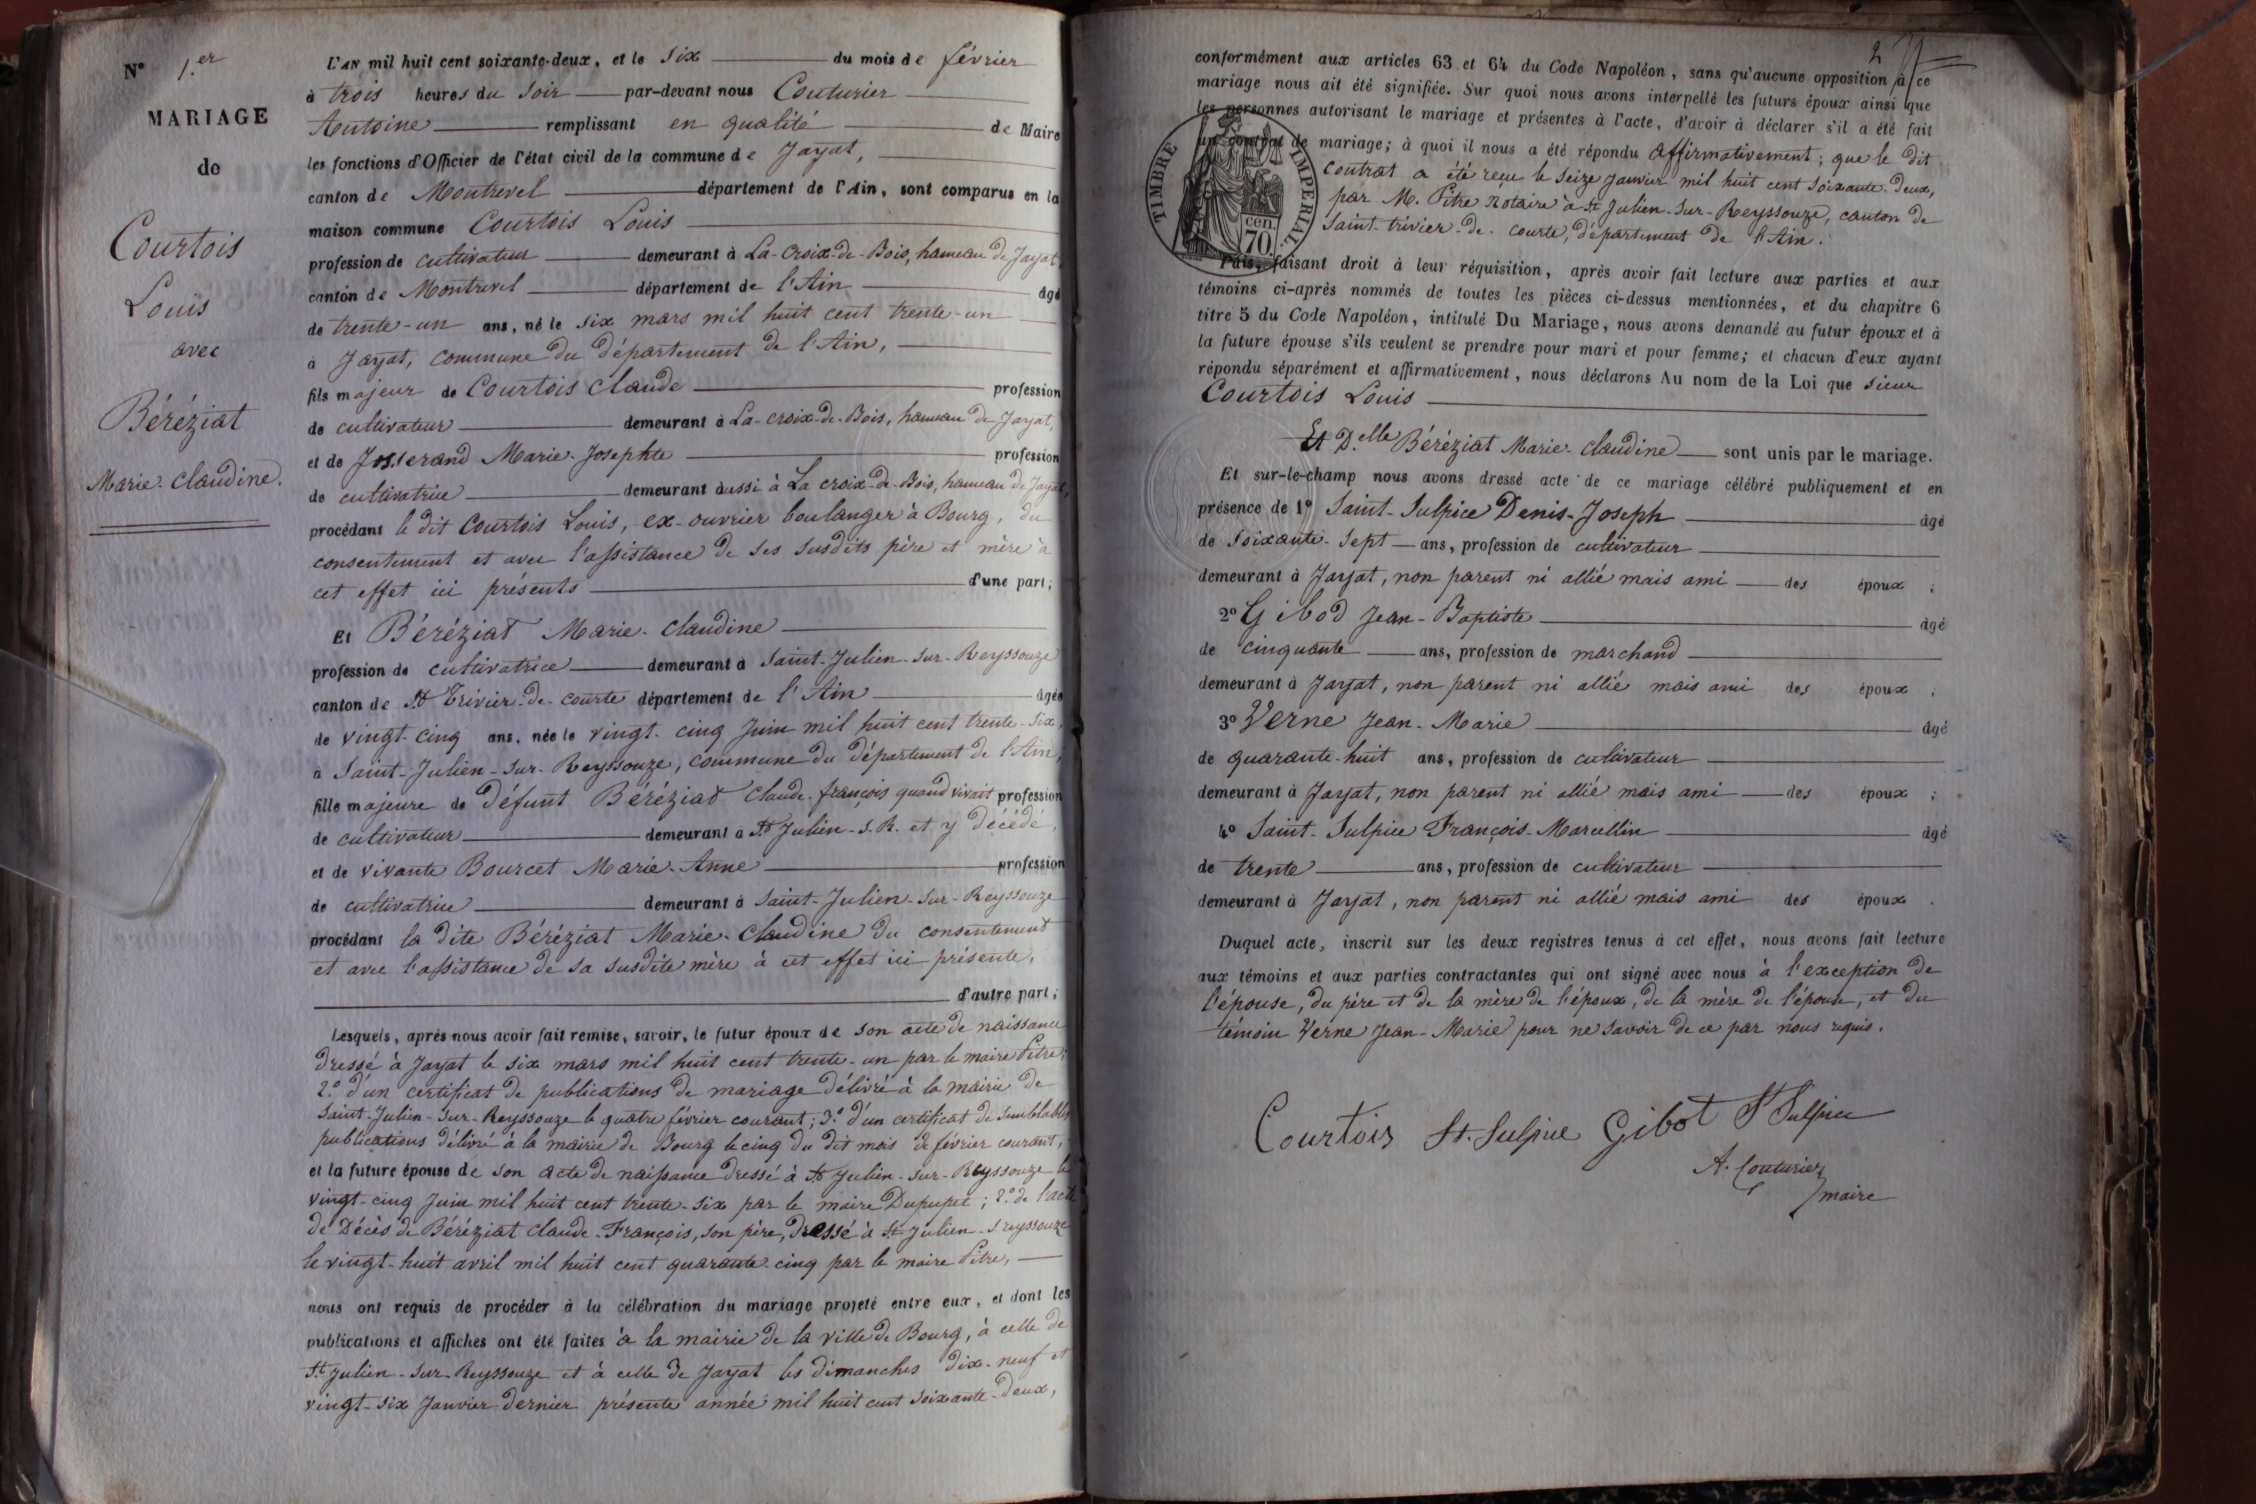 N° 1.er
MARIAGE
de
Courtois
Louis
avec
Béréziat
Marie-Claudine.
L'AN mil huit cent soixante-deux, et le six du mois de février
à trois heures du soir par-devant nous Couturier
Antoine remplissant en qualité de Maire
les fonctions d'Officier de l'état civil de la commune de Jayat,
canton de Montrevel département de l'Ain, sont comparus en la
maison commune Courtois Louis
profession de cultivateur demeurant à La-Croix-de-Bois, hameau de Jayat
canton de Montrevel département de l'Ain âgé
de trente-un ans, né le six mars mil huit cent trente-un
à Jayat, commune du département de l'Ain,
fils majeur de Courtois Claude profession
de cultivateur demeurant à La-croix-de-Bois, hameau de Jayat,
et de Josserand Marie-Josephte profession
de cultivatrice demeurant aussi à La croix-de-Bois, hameau de Jayat,
procédant le dit Courtois Louis, ex-ouvrier boulanger à Bourg, du
consentement et avec l'assistance de ses susdits père et mère à
cet effet ici présents d'une part;
Et Béréziat Marie-Claudine
profession de cultivatrice demeurant à Saint-Julien-sur-Reyssouze
canton de St Trivier-de-courte département de l'Ain âgée
de vingt-cinq ans, née le vingt-cinq Juin mil huit cent trente-six,
à Saint-Julien-sur-Reyssouze, commune du département de l'Ain,
fille majeure de défunt Béréziat Claude-françois quand vivait profession
de cultivateur demeurant à St Julien-s.R. et y décédé,
et de vivante Bourcet Marie-Anne profession
de cultivatrice demeurant à Saint-Julien-sur-Reyssouze
procédant la dite Béréziat Marie-Claudine du consentement
et avec l'assistance de sa susdite mère à cet effet ici présente,
d'autre part;
Lesquels, après nous avoir fait remise, savoir, le futur époux de son acte de naissance
dressé à Jayat le six mars mil huit cent trente-un par le maire Pitre;
2.° d'un certificat de publications de mariage délivré à la mairie de
Saint-Julien-sur-Reyssouze le quatre février courant; 3.° d'un certificat de semblables
publications délivré à la mairie de Bourg le cinq du dit mois de février courant,
et la future épouse de son acte de naissance dressé à St Julien-sur-Reyssouze le
vingt-cinq Juin mil huit cent trente-six par le maire Dupupet; 2.° de l'acte
de Décès de Béréziat Claude-François, son père, dressé à St Julien-s reyssouze
le vingt-huit avril mil huit cent quarante-cinq par le maire Pitre,
nous ont requis de procéder à la célébration du mariage projeté entre eux, et dont les
publications et affiches ont été faites à la mairie de la ville de Bourg, à celle de
St Julien-sur-Reyssouze et à celle de Jayat les dimanches dix-neuf et
vingt-six Janvier dernier présente année mil huit cent soixante-deux,
2
conformément aux articles 63 et 64 du Code Napoléon, sans qu'aucune opposition à ce
mariage nous ait été signifiée. Sur quoi nous avons interpellé les futurs époux ainsi que
les personnes autorisant le mariage et présentes à l'acte, d'avoir à déclarer s'il a été fait
un contrat de mariage; à quoi il nous a été répondu affirmativement; que le dit
contrat a été reçu le seize janvier mil huit cent soixante-deux,
par M. Pitre notaire à St Julien-sur-Reyssouze, canton de
Saint-trivier-de-courte, département de l'Ain.
TIMBRE IMPERIAL.
cen.
70.
Puis, faisant droit à leur réquisition, après avoir fait lecture aux parties et aux
témoins ci-après nommés de toutes les pièces ci-dessus mentionnées, et du chapitre 6
titre 5 du Code Napoléon, intitulé Du Mariage, nous avons demandé au futur époux et à
la future épouse s'ils veulent se prendre pour mari et pour femme; et chacun d'eux ayant
répondu séparément et affirmativement, nous déclarons Au nom de la Loi que sieur
Courtois Louis
Et D.elle Béréziat Marie-Claudine sont unis par le mariage.
Et sur-le-champ nous avons dressé acte de ce mariage célébré publiquement et en
présence de 1° Saint-Sulpice Denis-Joseph âgé
de soixante-sept ans, profession de cultivateur
demeurant à Jayat, non parent ni allié mais ami des époux ;
2° Gibod Jean-Baptiste âgé
de cinquante ans, profession de marchand
demeurant à Jayat, non parent ni allié mais ami des époux ;
3° Verne Jean-Marie âgé
de quarante-huit ans, profession de cultivateur
demeurant à Jayat, non parent ni allié mais ami des époux ;
4° Saint-Sulpice François-Marcellin âgé
de trente ans, profession de cultivateur
demeurant à Jayat, non parent ni allié mais ami des époux .
Duquel acte, inscrit sur les deux registres tenus à cet effet, nous avons fait lecture
aux témoins et aux parties contractantes qui ont signé avec nous à l'exception de
l'épouse, du père et de la mère de l'époux, de la mère de l'épouse, et du
témoin Verne Jean-Marie pour ne savoir de ce par nous requis.
Courtois St. Sulpice Gibot St Sulpice
A. Couturier
maire